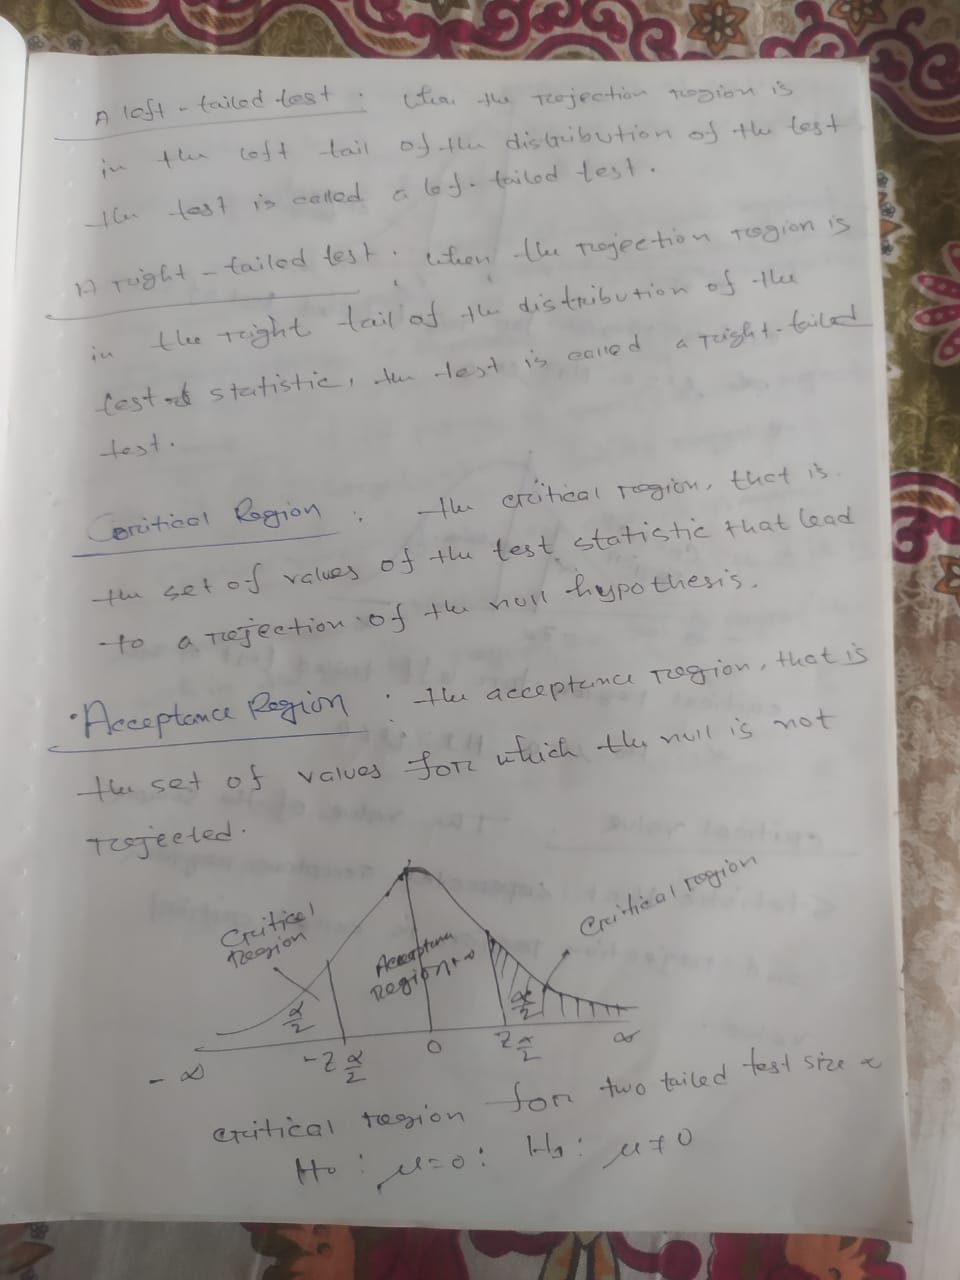 A left-tailed test : When the rejection region is
in the left tail of the distribution of the test
the test is called a lef-tailed test.
A right-tailed test. When the rejection region is
in the right tail of the distribution of the
test statistic, the test is called a right-tailed
test.
Critical Region : the critical region, that is
the set of values of the test statistic that lead
to a rejection of the null hypothesis.
• Acceptance Region : the acceptance region, that is
the set of values for which the null is not
rejected.
Critical region
Critical
Region
Acceptance
Region
α/2
α/2
- ∞
-Z α/2
0
Z α/2
∞
critical region for two tailed test size α
H0 : μ=0 : H1 : μ≠0